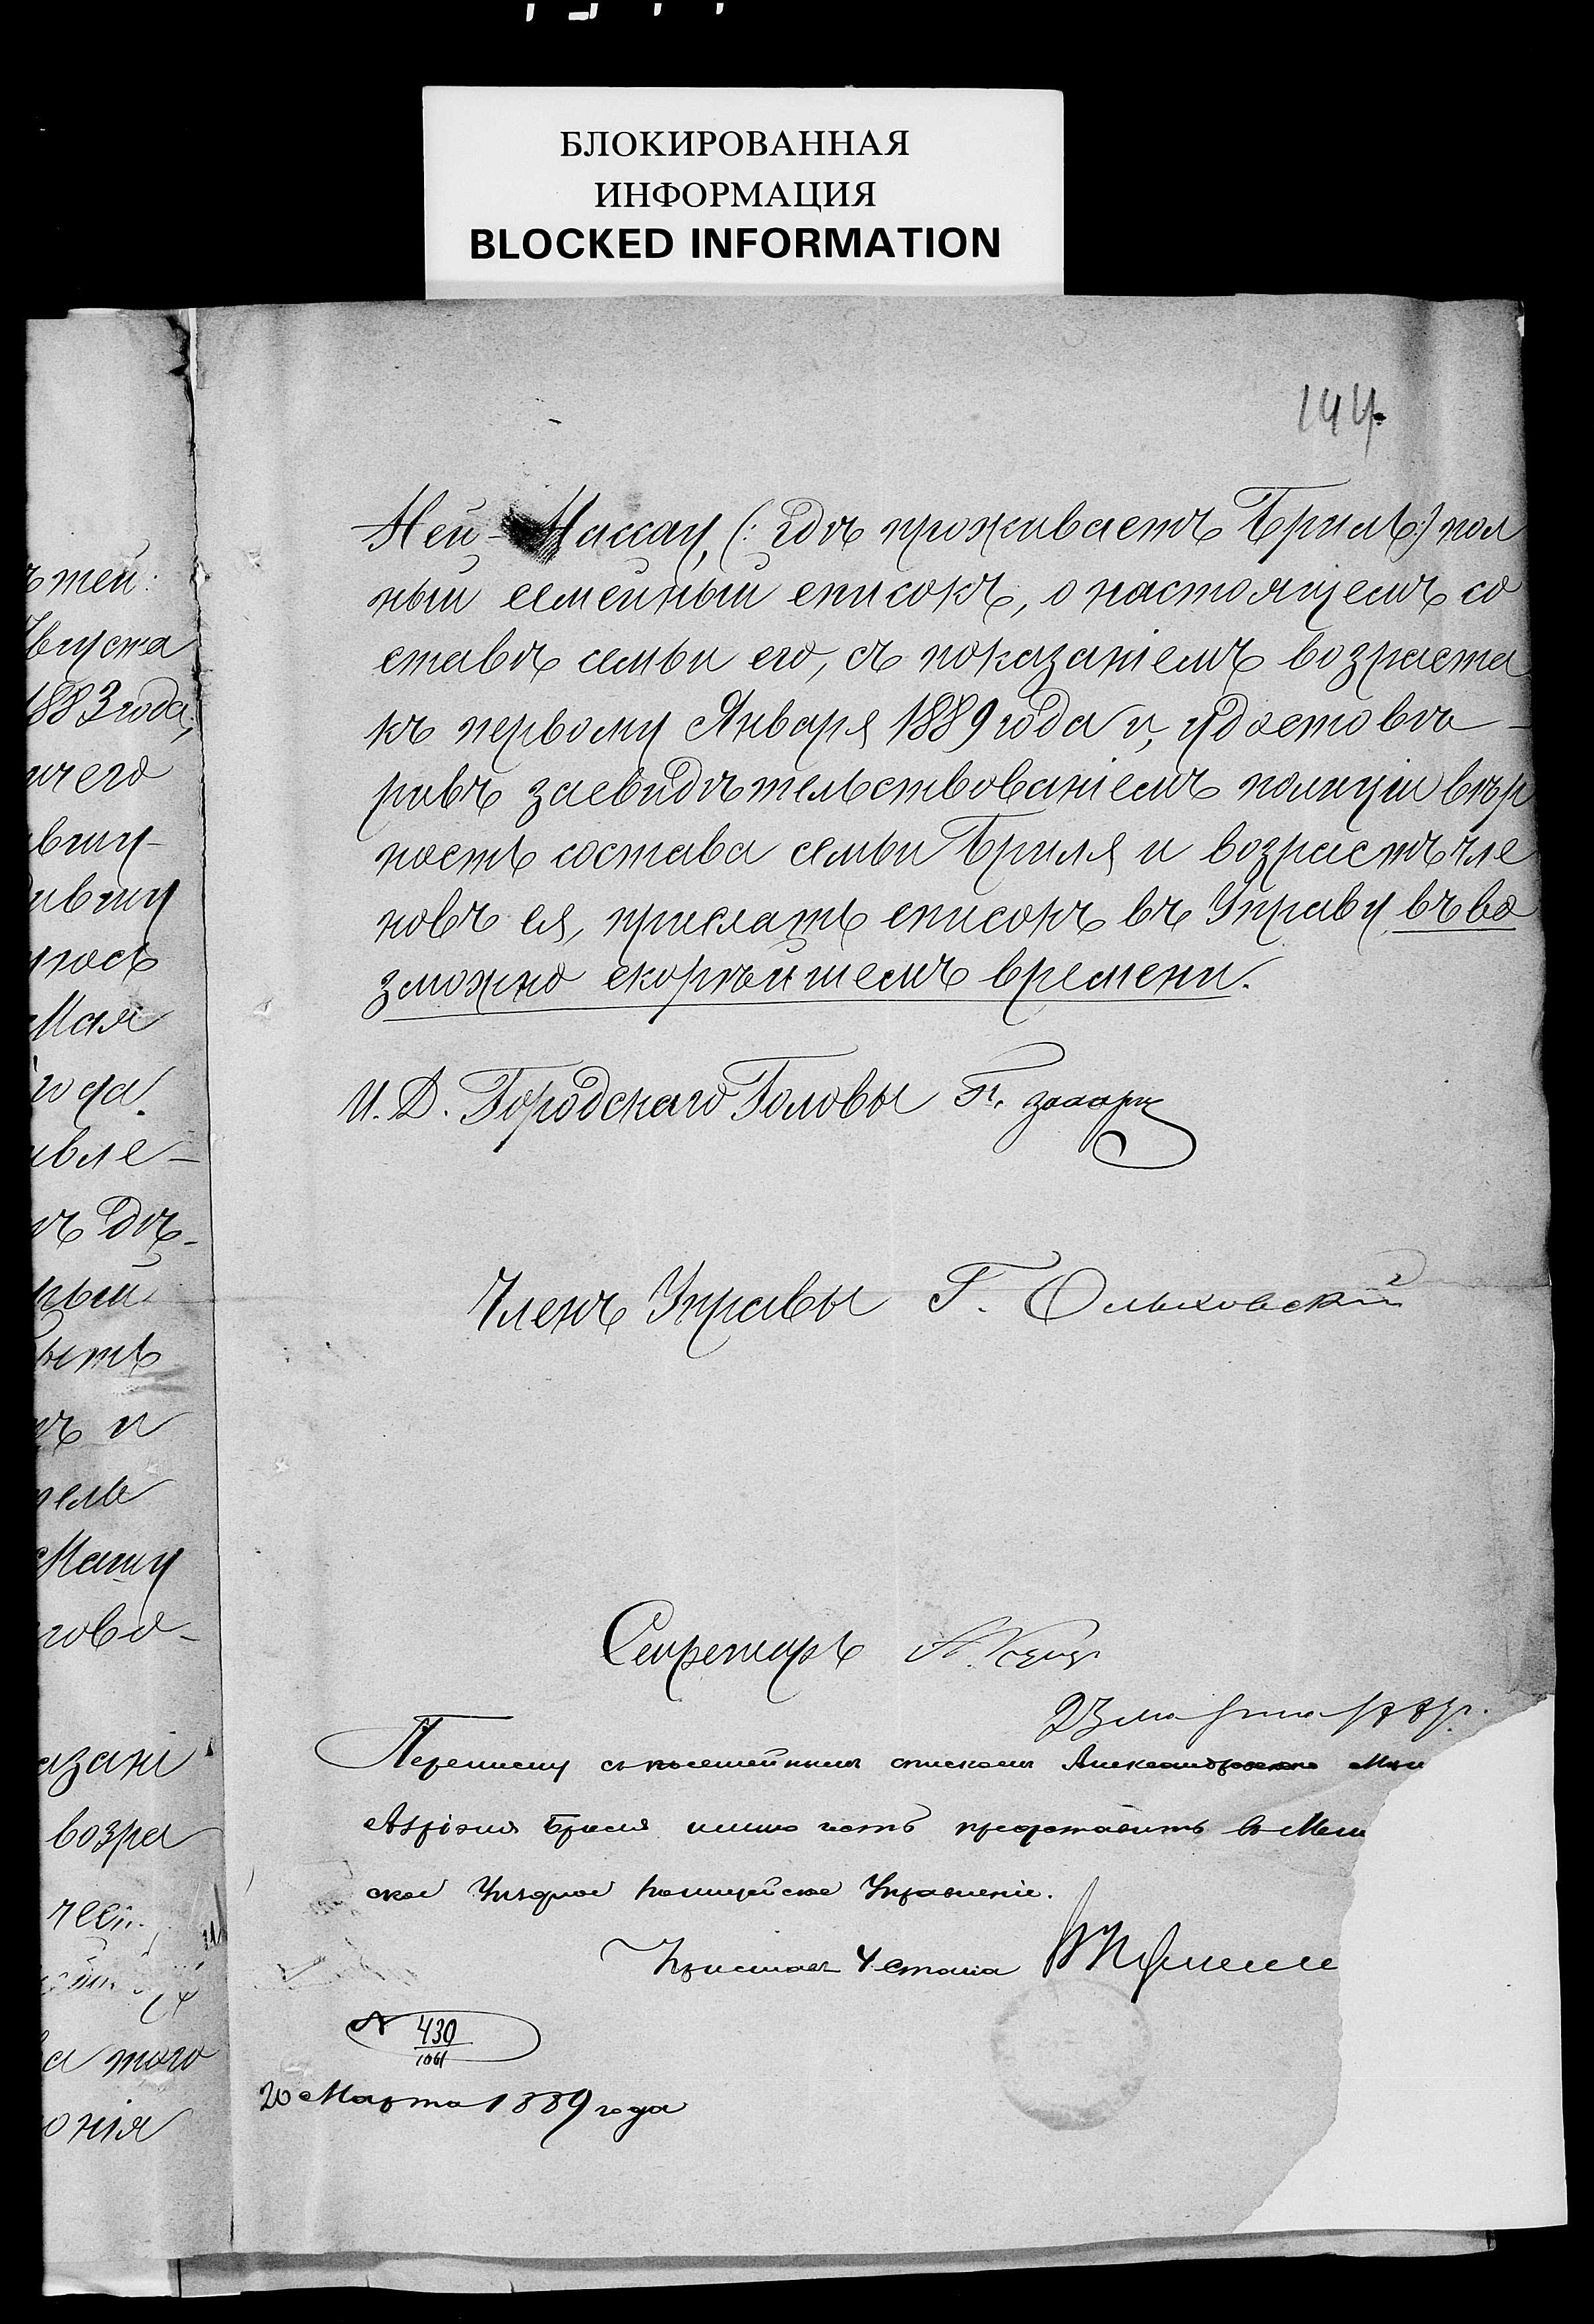 БЛОКИРОВАННАЯ
ИНФОРМАЦИЯ
BLOCKED INFORMATION
144.
Ней-Нассау, (: гдѣ проживаетъ Бриль:) пол
ный семейный списокъ, о настоящемъ со
ставѣ семьи его, съ показаніемъ возраста
къ первому Января 1889 года и, удостовѣ-
ривъ засвидѣтельствованіемъ полиціи вѣр
ность состава семьи Бриля и возрастъ чле
новъ ея, прислать списокъ въ Управу въ во
зможно скорѣйшемъ времени.
И. Д. Городскаго Головы
Членъ Управы Г. Ольховскій
Секретарь
23 марта
Переписку съ посемейнымъ спискомъ
Бриля имѣю честь представить въ
ское Уѣздное Полицейское Управленіе.
Приставъ 4 стана
№ 430
20 Марта 1889 года
ѣтей:
Августа
1883 года;
его
Мая
года.
ивле-
дѣ-
ный
ъ и
Машу
гово-
азані
возра
чест
а того
онія